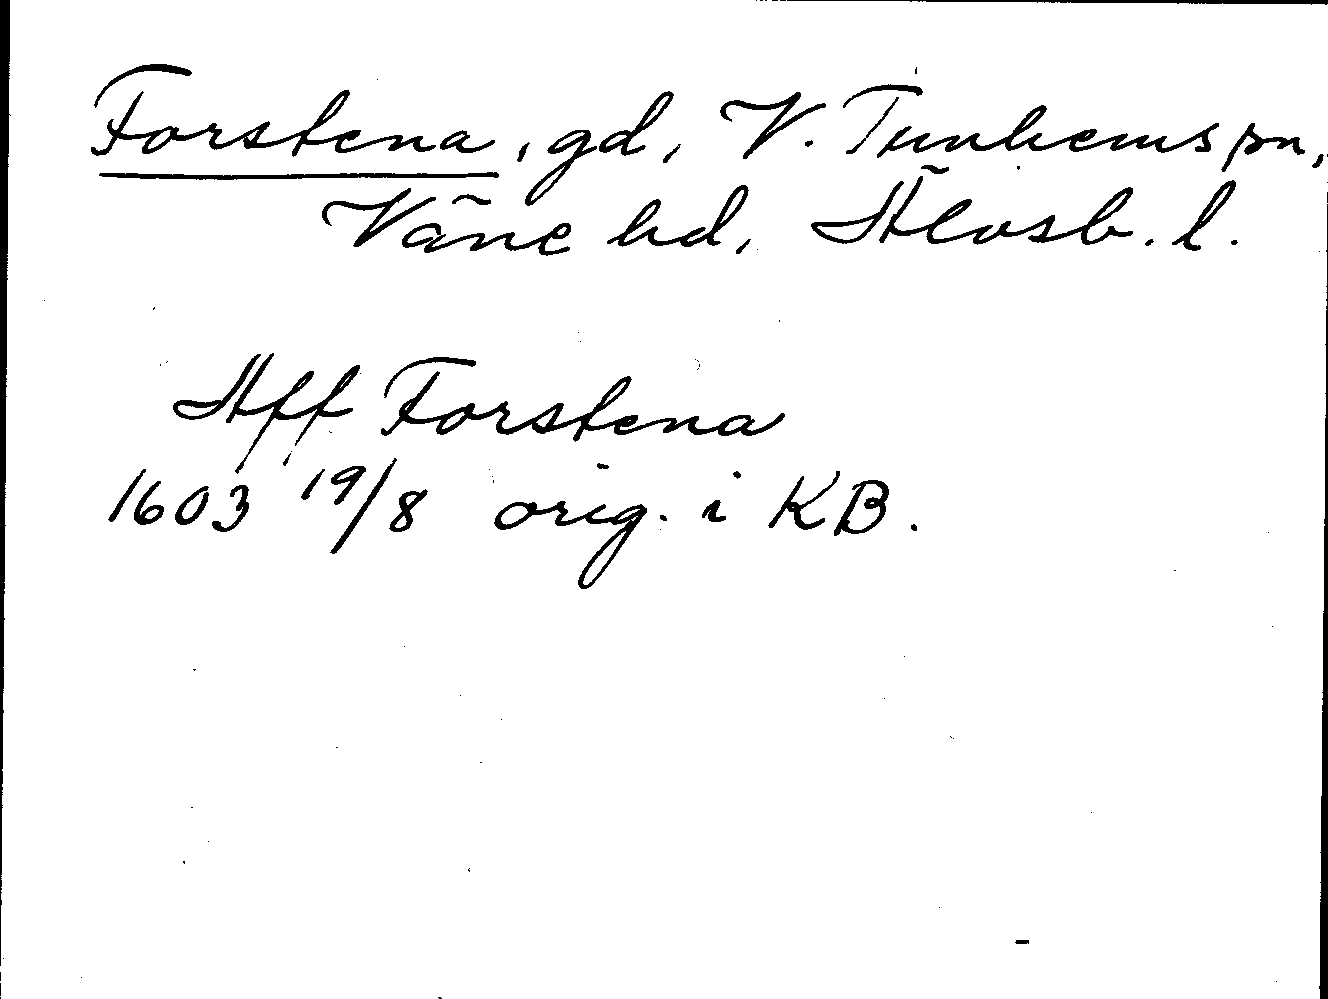 Forstena, gd, V. Tunhems sn,
Väne hd, Älvsb. l.
Aff Forstena
1603 19/8 orig. i KB.